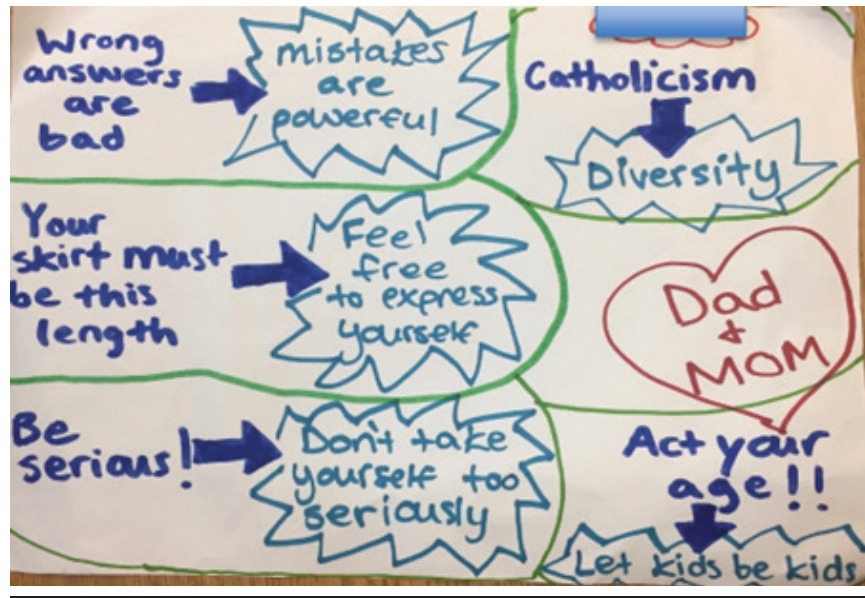 Wrong
answers
are
bad
mistakes
are
powerful
Catholicism
Diversity
Your
skirt must
be this
length
Feel
free
to express
yourself
Dad
+
MOM
Be
serious!
Don't take
yourself too
seriously
Act your
age!!
Let kids be kids